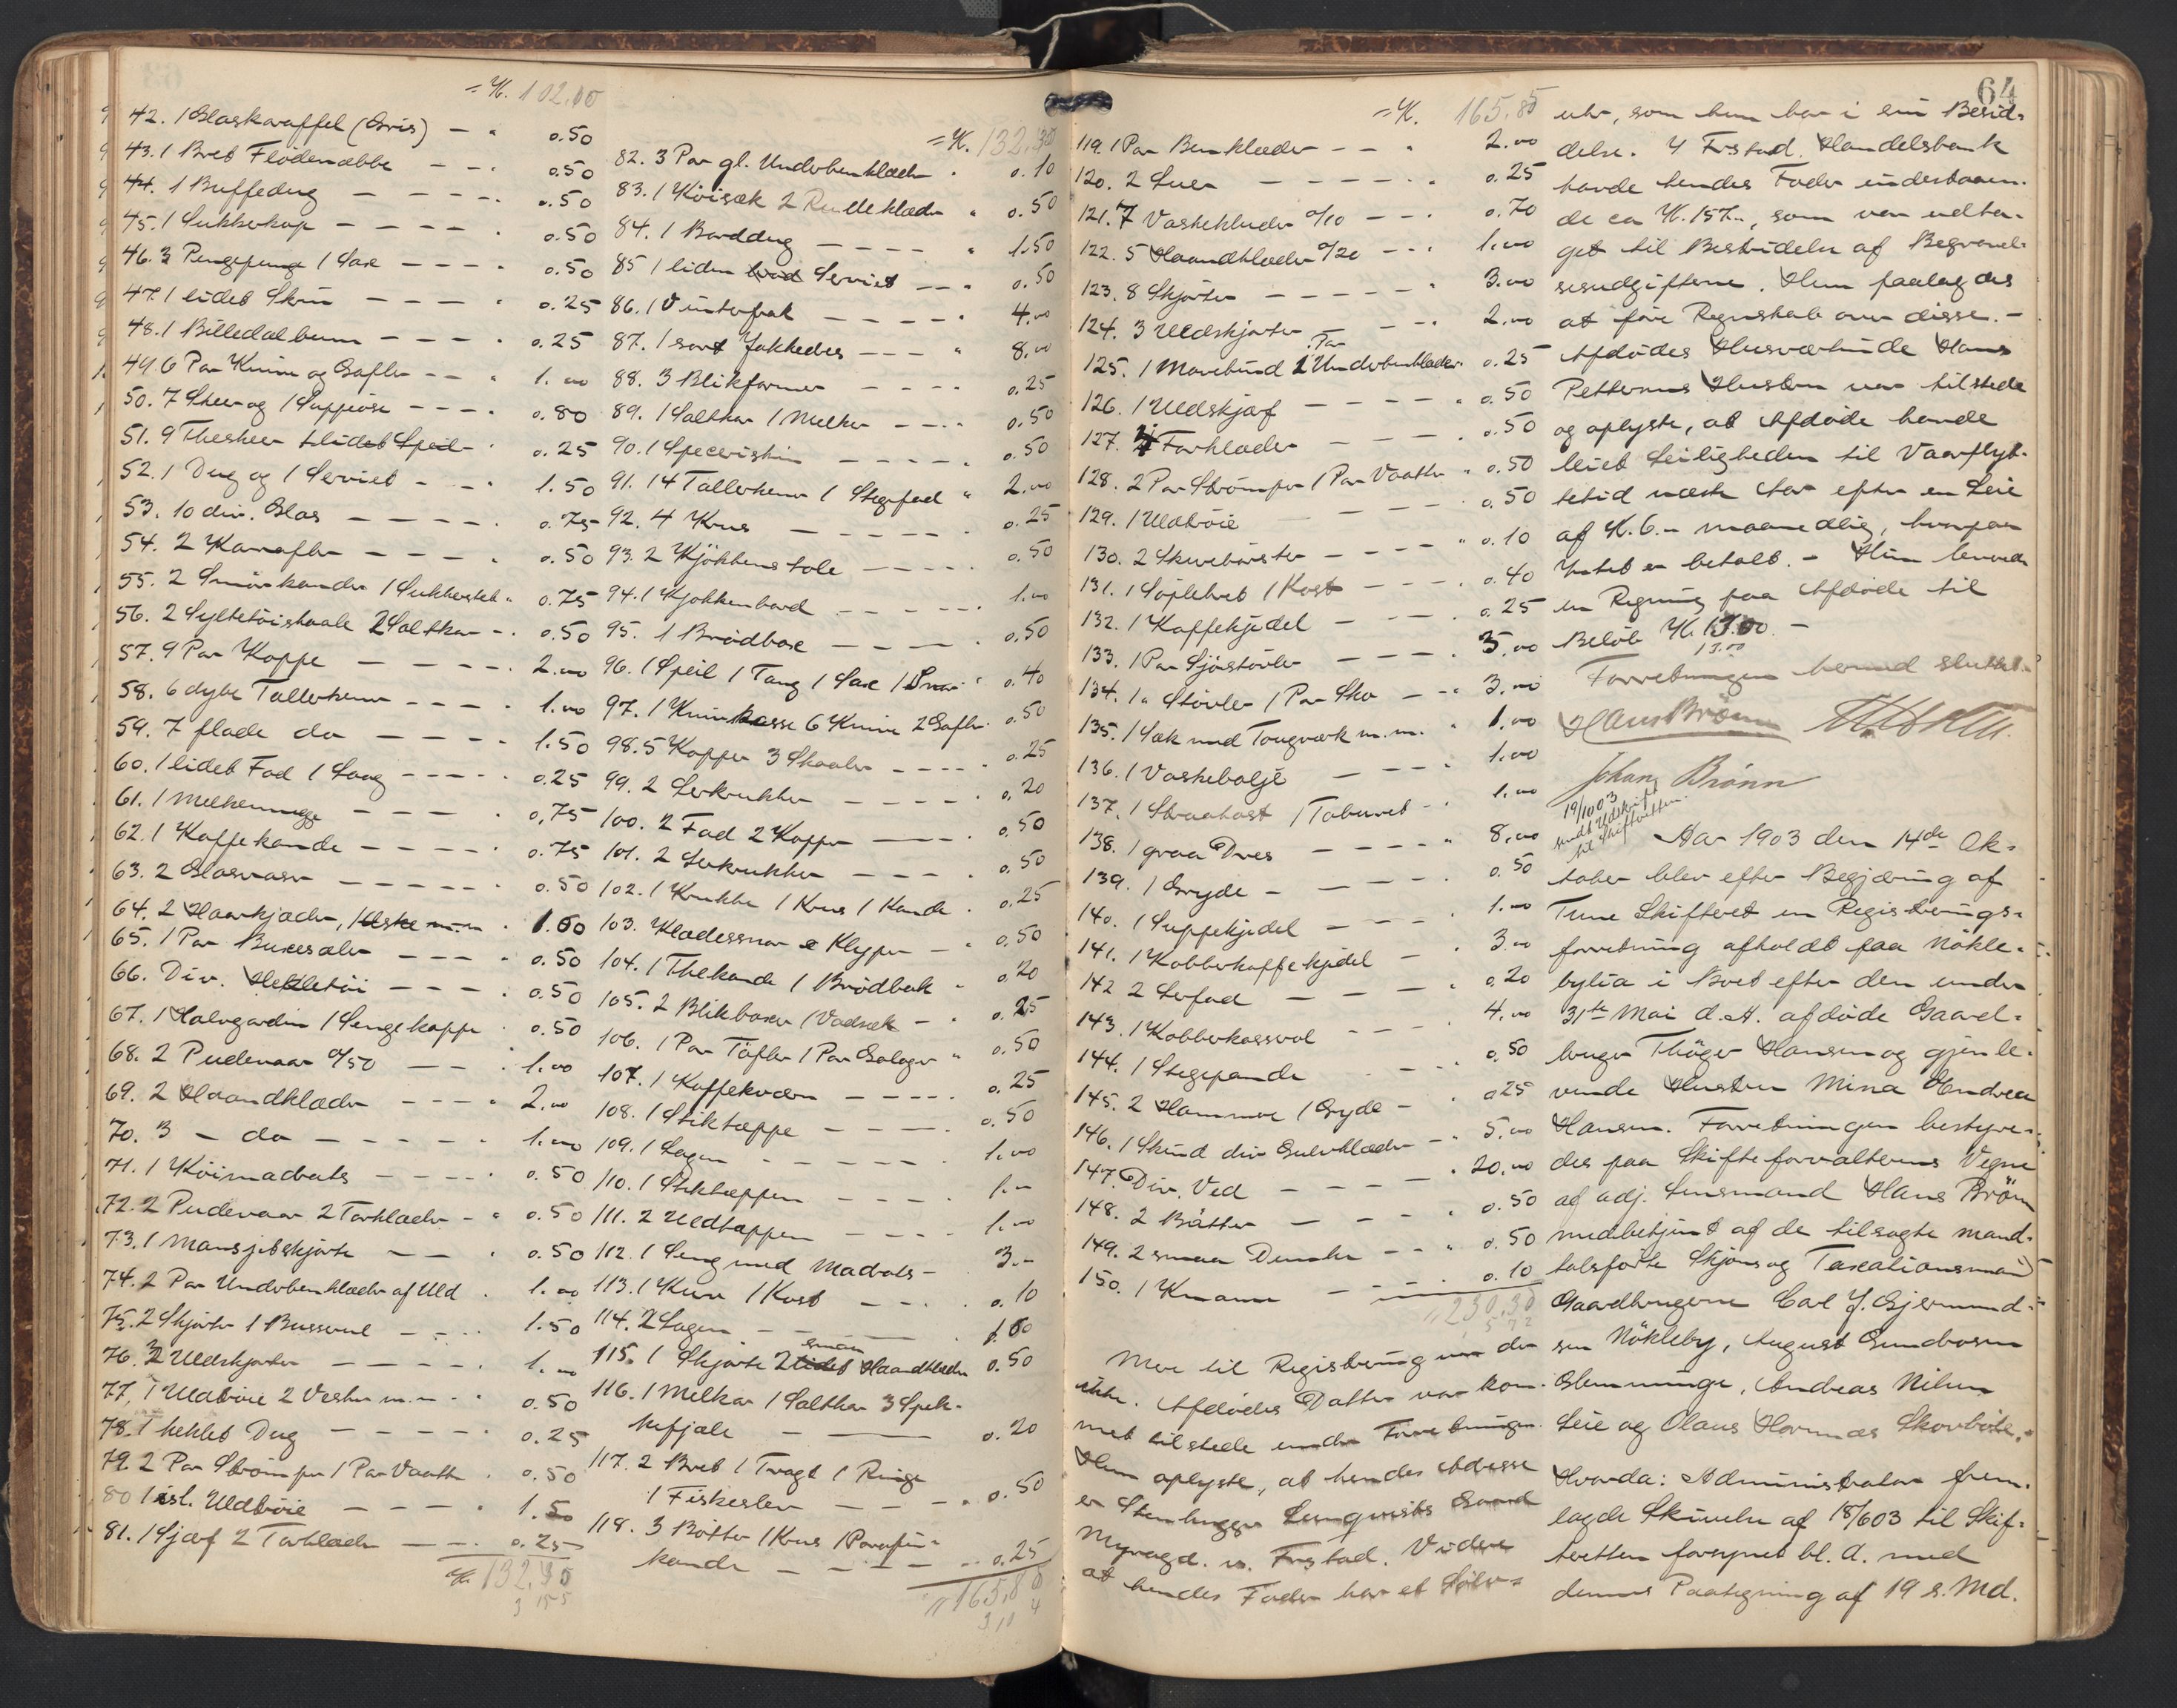 = K. 102.00
42. 1 Glaskaraffel (Gris) — " 0.50
43. 1 Bret Flödenæbbe — — " 0.50
44. 1 Buffedug — — — — " 0.50
45. 1 Sukkerkop — — — — " 0.50
46. 3 Pengepung 1 Sax — — — — 0.50
47. 1 lidet Skrin — — — — " 0.25
48. 1 Billedalbum — — — — " 0.25
49. 6 Par Knive og Gafler — — " 1.00
50. 7 Skeer og 1 Suppeöse — — — " 0.80
51. 9 Theskeer 1 lidet Speil — " 0.25
52. 1 Dug og 1 Serviet — — " 1.50
53. 10 div. Glas — — — — — " 0.75
54. 2 Karafler — — — — " 0.50
55. 2 Smörkander 1 Sukkerstel " 0.75
56. 2 Syltetöiskaale 2 Saltkar — " 0.50
57. 9 Par Koppe — — — — " 2.00
58. 6 dybe Tallerkener — — — — " 1.00
59. 7 flade do — — — — " 1.50
60. 1 lidet Fad 1 Laag — — — — " 0.25
61. 1 Melkemugge — — — " 0.75
62. 1 Kaffekande — — — — " 0.75
63. 2 Glasvaser — — — — — " 0.50
64. 2 Haarkjæder, 1 Æske m.m. " 1.00
65. 1 Par Buxesæler — — — " 0.50
66. Div. Hekletöi — — — " 0.50
67. 1 Halvgardin 1 Sengekappe " 0.50
68. 2 Pudevaar o/50 — — " 1.00
69. 2 Haandklæder — — — " 2.00
70. 3 — do — — — — — " 1.00
71. 1 Köimadrats — — — — " 0.50
72. 2 Pudevaar 2 Tørklæder — " 0.50
73. 1 Mansjetskjorte — — " 0.50
74. 2 Par Underbenklæder af Uld " 1.00
75. 2 Skjorter 1 Busserul — — " 1.50
76. 3 Uldskjorter — — — — — 1.00
77. 1 Uldtröie 2 Vester m.m. — " 0.50
78. 1 heklet Dug — — — — — " 0.25
79. 2 Par Strömper 1 Par Vaatter " 0.50
80 1 isl. Uldtröie — — — — " 1.50
81. 1 Sjerf 2 Tørklæder — — " 0.25
K. 132,30
= K. 132,30
82. 3 Par gl. Underbenklæder " 0.10
83. 1 Köisæk 2 Rulleklæder " 0.50
84. 1 Borddug — — — — " 1.50
85 1 liden Serviet — — " 0.50
86. 1 Vinterfrak — — — — " 4.00
87. 1 sort Jakkedres — — — " 8.00
88. 3 Blikformer — — — — 0.25
89. 1 Saltkar 1 Melker — — " 0.50
90. 1 Speceriskrin — — — — " 0.50
91. 14 Tallerkener 1 Stegefad " 2.00
92. 4 Krus — — — — — " 0.25
93. 2 Kjökkenstole — — — — — 0.50
94. 1 Kjøkkenbord — — — — — " 1.00
95. 1 Brödboxe — — — — " 0.50
96. 1 Speil 1 Tang 1 Sax 1 Snor " 0.40
97. 1 Knivkasse 6 Knive 2 Gafler " 0.50
98. 5 Kopper 3 Skaaler — — — — " 0.25
99. 2 Lerkrukker — — — — — 0.20
100. 2 Fad 2 Kopper — — — " 0.50
101. 2 Lerkrukker — — — — " 0.50
102. 1 Krukke 1 Krus 1 Kande " 0.25
103. Klædessnor & Klyper — " 0.50
104. 1 Thekande 1 Brödbæk " 0.20
105. 2 Blikboxer 1 Vadsæk — " 0.25
106. 1 Par Töfler 1 Par Galoger " 0.50
107. 1 Kaffekværn — — — — — 0.25
108. 1 Stiktæppe — — — — " 0.50
109. 1 Lagen — — — — — — 1.00
110. 1 Stiktæppen — — — — " 1.—
111. 2 Uldtæppen — — — — " 1.00
112. 1 Seng med Madrats — 3.—
113. 1 Kurv 1 Kost — — — " 0.10
114. 2 Lagen — — — — " 1.00
115. 1 Skjorte 2 smaa Haandklæder 0.50
116. 1 Melkar 1 Saltkar 3 Spek-
kefjæle — — — 0.20
117. 2 Bret 1 Tragt 1 Ringe
1 Fiskeslev — — — " 0.50
118. 3 Bötter 1 Krus 1 Parafin-
kande — — — — " 0.25
" 165,85
64
= K. 165,85
119. 1 Par Benklæder — — " 2.00
120. 2 Luer — — — — — " 0.25
121. 7 Vaskekluder o/10 — — " 0.70
122. 5 Haandklæder o/20 — — " 1.00
123. 8 Skjorter — — — — — " 3.00
124. 3 Uldskjorter — — " 2.00
125. 1 Mavebind 1 Par Underbenklæder " 0.25
126. 1 Uldskjerf — — — — " 0.50
127. 4 Forklæder — — — — " 0.50
128. 2 Par Strömper 1 Par Vaatter " 0.50
129. 1 Uldtröie — — — — 0.50
130. 2 Skurebørster — — — — " 0.10
131. 1 Söplebret 1 Kost — — — " 0.40
132. 1 Kaffekjedel — — — " 0.25
133. 1 Par Sjöstövler — — — " 5.00
134. 1 " Stövler 1 Par Sko — — " 3.00
135. 1 Sæk med Tougværk m.m. " 1.00
136. 1 Vaskebalje — — — " 1.00
137. 1 Straahat 1 Taburet — " 1.00
138. 1 graa Dres — — — — " 8.00
139. 1 Gryde — — — — " 0.50
140. 1 Suppekjedel — — — " 1.00
141. 1 Kobberkaffekjedel — " 3.00
142 2 Lerfad — — — — " 0.20
143. 1 Kobberkasserol — — — " 4.00
144. 1 Stegepande — — — 0.50
145. 2 Hammere 1 Gryde — " 0.25
146. 1 Skind div Gulvklæder — " 5.00
147. Div. Ved — — — — — " 20.00
148. 2 Bötter — — — — " 0.50
149. 2 smaa Dunke — — " 0.50
150. 1 Knann — — — " 0.10
" 230,30
Mer til Registrering var der
ikke. Afdødes Datter var kom-
met tilstede under Forretningen.
Hun oplyste, at hendes Adresse
er Stenhugger Lengvists Gaard
Myragd. v. Frstad. Videre
at hendes Fader har et Sölv-
uhr, som hun har i sin Besid-
delse. I Frstad. Handelsbank
havde hendes Fader indestaaen-
de ca K. 157.-, som var udta-
get til Bestridelse af Begravel-
sesudgifterne. Hun paalagdes
at före Regnskab over disse. —
Afdödes Husværtinde Hans
Petternes Hustru var tilstede
og oplyste, at Afdöde havde
leiet Leiligheden til Vaarflyt-
tetid næste Aar efter en Leie
af K. 6.- maanedlig, hvorpaa
Intet er betalt. — Hun leverede
en Regning paa Afdöde til
Belöb K. 13.00. —
13.00
Forretningen hermed sluttet.
Hans Brönn
Johans Brönn
19/10 03
sendt Udskrift
til Skifteretten.
Aar 1903 den 14de Ok-
tober blev efter Begjæring af
Tune Skifteret en Registrerings-
forretning afholdt paa Nökle-
bylia i Boet efter den under
31te Mai d.A. afdöde Gaard-
bruger Thöger Hansen og gjenle-
vende Hustru Mina Andrea
Hansen. Forretningen bestyre-
des paa Skifteforvalterens Vegne
af adj. Lensmand Hans Brönn
medbetjent af de tilsagte mand-
talsførte Skjöns og Taxationsmænd
Gaardbrugerne Carl J. Gjermund-
sen Nökleby, August Gundersen
Glemminge, Andreas Nilsen
Leie og Olaus Hornnæs Skovböle.
Hvorda: Administrator frem-
lagde Skrivelse af 18/603 til Skif-
teretten forsynet bl. A. med
dennes Paategning af 19 s. Md.